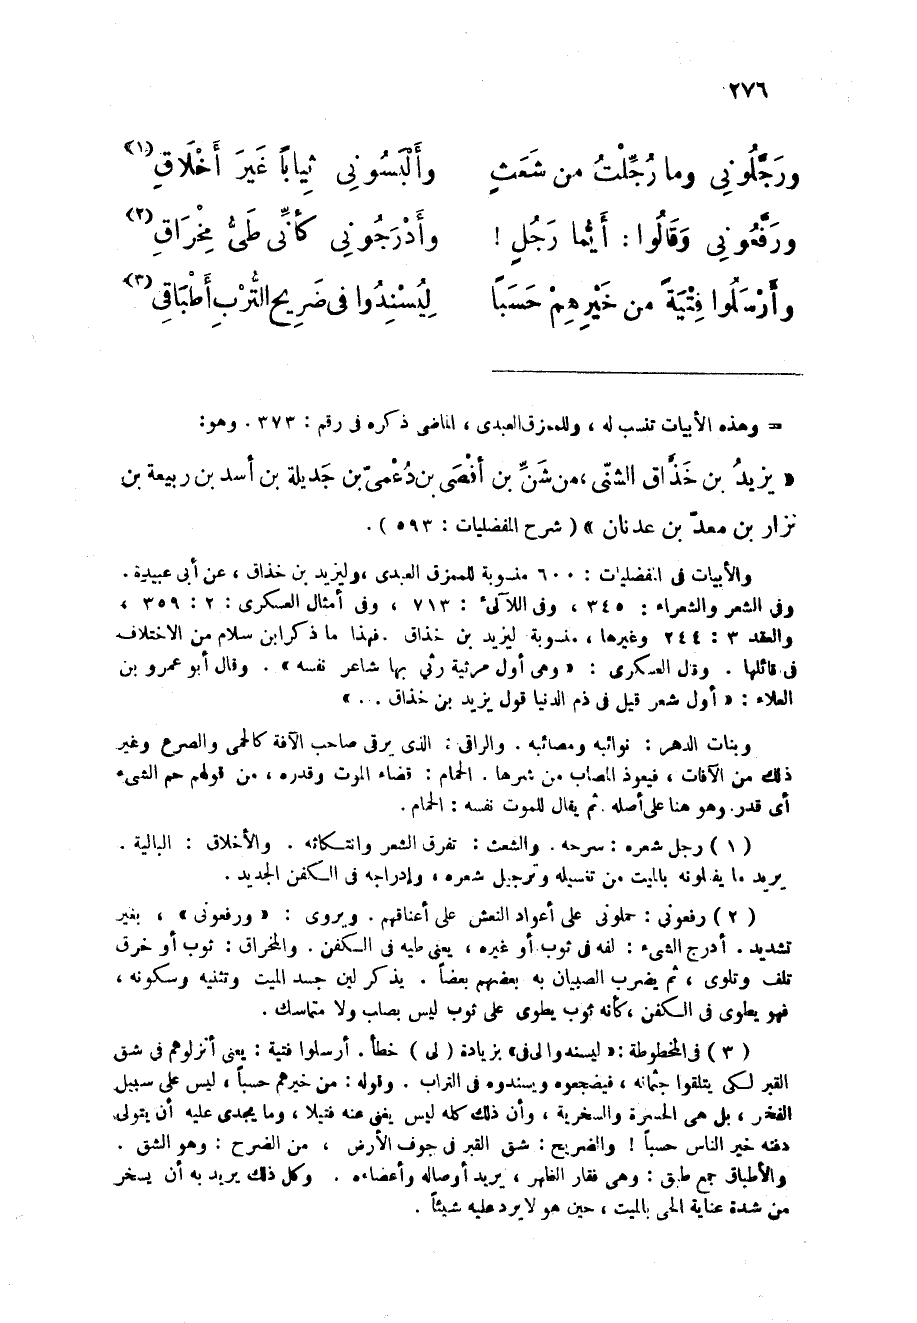 ٢٧٦
ورَجَّلُونِي وما رُجِّلْتُ من شَعَثٍ وأَلْبَسُونِي ثِياباً غَيرَ أَخْلَاقٍ (١)
ورَفَّعُونِي وَقَالُوا : أَيُّما رَجُلٍ ! وأَدْرَجُونِي كأنِّى طَىُّ مِخْرَاقِ (٢)
وأَرْسَلُوا فِتْيَةً من خَيْرِهِمْ حَسَبًا لِيُسْنِدُوا فى ضَرِيحِ التُّرْبِ أَطْبَاقِى (٣)
= وهذه الأبيات تنسب له ، وللممزق العبدى ، الماضى ذكره فى رقم : ٣٧٣ . وهو:
« يزيدُ بن خَذَّاق الشنّى ، من شَنِّ بن أفْصَى بن دُعْمىّ بن جَديلة بن أسد بن ربيعة بن
نزار بن معدّ بن عدنان » ( شرح المفضليات : ٥٩٣ ) .
والأبيات فى المفضليات : ٦٠٠ منسوبة للممزق العبدى ، وليزيد بن خذاق ، عن أبى عبيدة .
وفى الشعر والشعراء : ٣٤٥ ، وفى اللآلىء : ٧١٣ ، وفى أمثال العسكرى : ٢ : ٣٥٩ ،
والعقد ٣ : ٢٤٤ وغيرها ، منسوبة ليزيد بن خذاق . فهذا ما ذكر ابن سلام من الاختلاف
فى قائلها . وقال العسكرى : « وهى أول مرثية رثى بها شاعر نفسه » . وقال أبو عمرو بن
العلاء : « أول شعر قيل فى ذم الدنيا قول يزيد بن خذاق . . . »
وبنات الدهر : نوائبه ومصائبه . والراقى : الذى يرقى صاحب الآفة كالحمى والصرع وغير
ذلك من الآفات ، فيعوذ المصاب من شرها . الحمام : قضاء الموت وقدره ، من قولهم حم الشىء
أى قدر . وهو هنا على أصله . ثم يقال للموت نفسه : الحمام .
( ١ ) رجل شعره : سرحه . والشعث : تفرق الشعر وانتكاثه . والأخلاق : البالية .
يريد ما يفعلونه بالميت من تغسيله وترجيل شعره ، وإدراجه فى الكفن الجديد .
( ٢ ) رفعونى : حملونى على أعواد النعش على أعناقهم . ويروى : « ورفعونى » ، بغير
تشديد . أدرج الشىء : لفه فى ثوب أو غيره ، يعنى طيه فى الكفن . والمخراق : ثوب أو خرق
تلف وتلوى ، ثم يضرب الصبيان به بعضهم بعضاً . يذكر لين جسد الميت وتثنيه وسكونه ،
فهو يطوى فى الكفن ، كأنه ثوب يطوى على ثوب ليس بصلب ولا متماسك .
( ٣ ) فى المخطوطة : « ليسندوا لى فى » بزيادة ( لى ) خطأ . أرسلوا فتية : يعنى أنزلوهم فى شق
القبر لكى يتلقوا جثمانه ، فيضجعوه ويسندوه فى التراب . وقوله : من خيرهم حسباً ، ليس على سبيل
الفخر ، بل هى الحسرة والسخرية ، وأن ذلك كله ليس يغنى عنه فتيلا ، وما يجدى عليه أن يتولى
دفنه خير الناس حسباً ! والضريح : شق القبر فى جوف الأرض ، من الضرح : وهو الشق .
والأطباق جمع طبق : وهى فقار الظهر ، يريد أوصاله وأعضاءه . وكل ذلك يريد به أن يسخر
من شدة عناية الحى بالميت ، حين هو لا يرد عليه شيئاً .